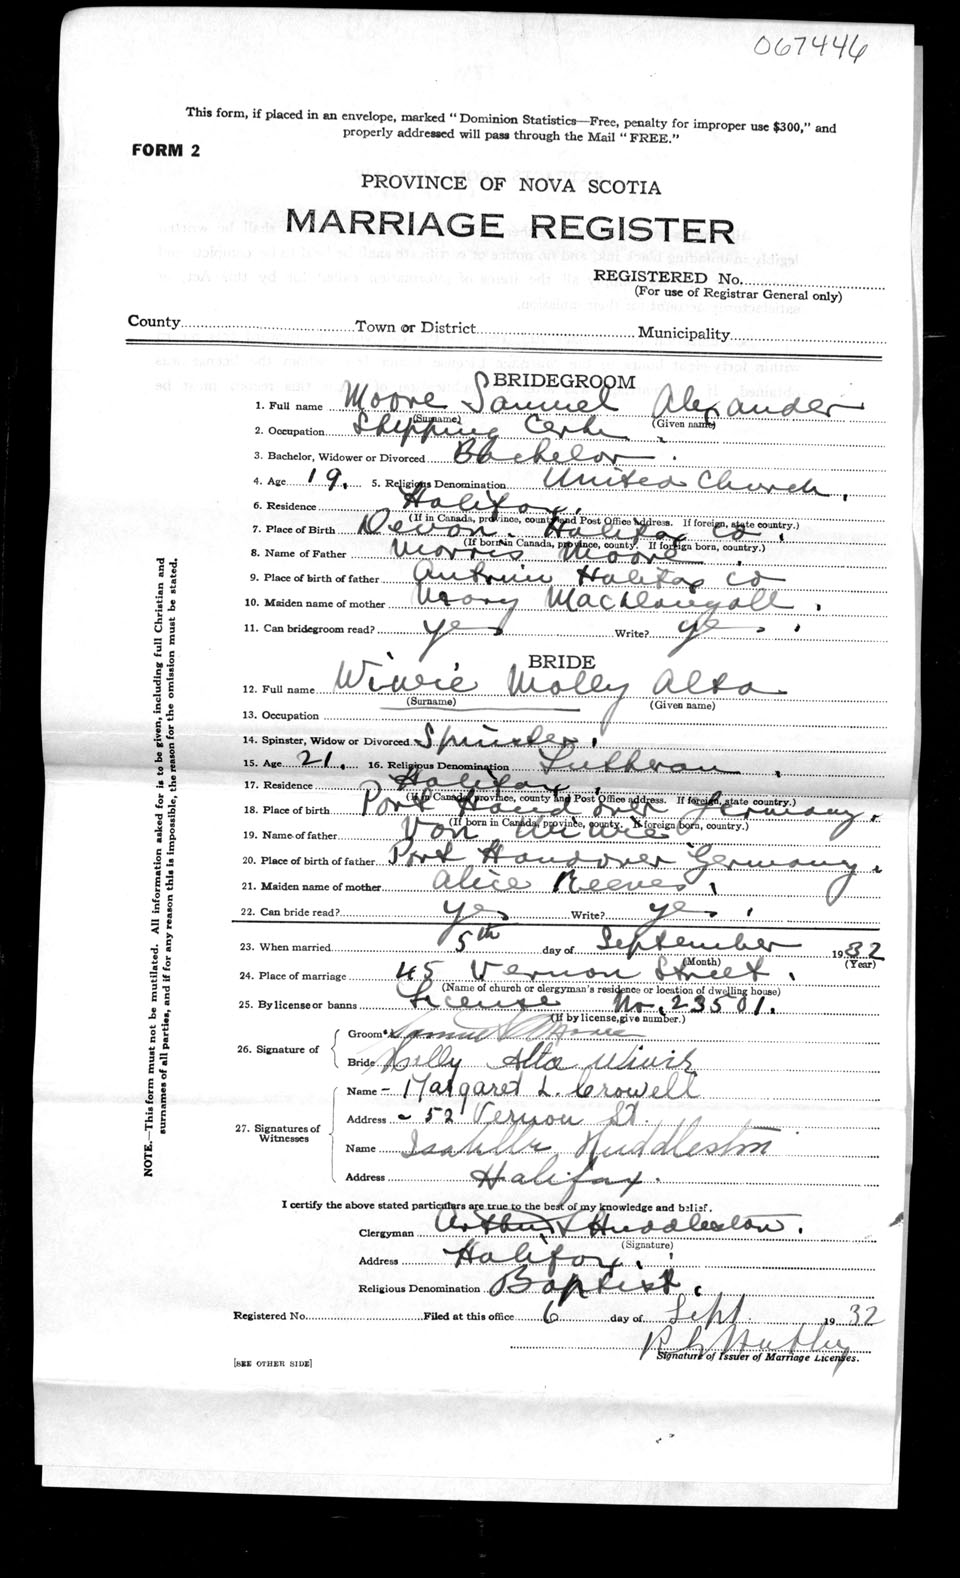 067446
This form, if placed in an envelope, marked "Dominion Statistics—Free, penalty for improper use $300," and
properly addressed will pass through the Mail "FREE."
FORM 2
PROVINCE OF NOVA SCOTIA
MARRIAGE REGISTER
REGISTERED No.
(For use of Registrar General only)
County Town or District Municipality
BRIDEGROOM
1. Full name Moore Samuel Alexander
(Surname) (Given name)
2. Occupation Shipping Clerk
3. Bachelor, Widower or Divorced Bachelor
4. Age 19. 5. Religious Denomination United Church.
6. Residence Halifax.
(If in Canada, province, county and Post Office address. If foreign, state country.)
7. Place of Birth Devon. Halifax Co.
(If born in Canada, province, county. If foreign born, country.)
8. Name of Father Morris Moore
9. Place of birth of father Antrim Halifax Co
10. Maiden name of mother Mary MacDougall.
11. Can bridegroom read? yes Write? yes.
BRIDE
12. Full name Molly Alta
(Surname) (Given name)
13. Occupation
14. Spinster, Widow or Divorced Spinster.
15. Age 21. 16. Religious Denomination Lutheran.
17. Residence Halifax.
(If in Canada, province, county and Post Office address. If foreign, state country.)
18. Place of birth Port Handover Germany.
(If born in Canada, province, county. If foreign born, country.)
19. Name of father Von
20. Place of birth of father Port Handover Germany.
21. Maiden name of mother Alice Reeves.
22. Can bride read? yes Write? yes.
23. When married 5th day of September 1932
(Month) (Year)
24. Place of marriage 45 Vernon Street.
(Name of church or clergyman's residence or location of dwelling house)
25. By license or banns License No. 23501.
(If by license, give number.)
26. Signature of
Groom Samuel Moore
Bride Alta
27. Signatures of Witnesses
Name - Margaret L. Crowell
Address - 52 Vernon St.
Name Isabelle Huddleston
Address Halifax.
I certify the above stated particulars are true to the best of my knowledge and belief.
Clergyman Arthur Huddleston.
(Signature)
Address Halifax.
Religious Denomination Baptist.
Registered No. Filed at this office 6 day of Sept 1932
Signature of Issuer of Marriage Licenses.
[SEE OTHER SIDE]
NOTE.—This form must not be mutilated. All information asked for is to be given, including full Christian and
surnames of all parties, and if for any reason this is impossible, the reason for the omission must be stated.